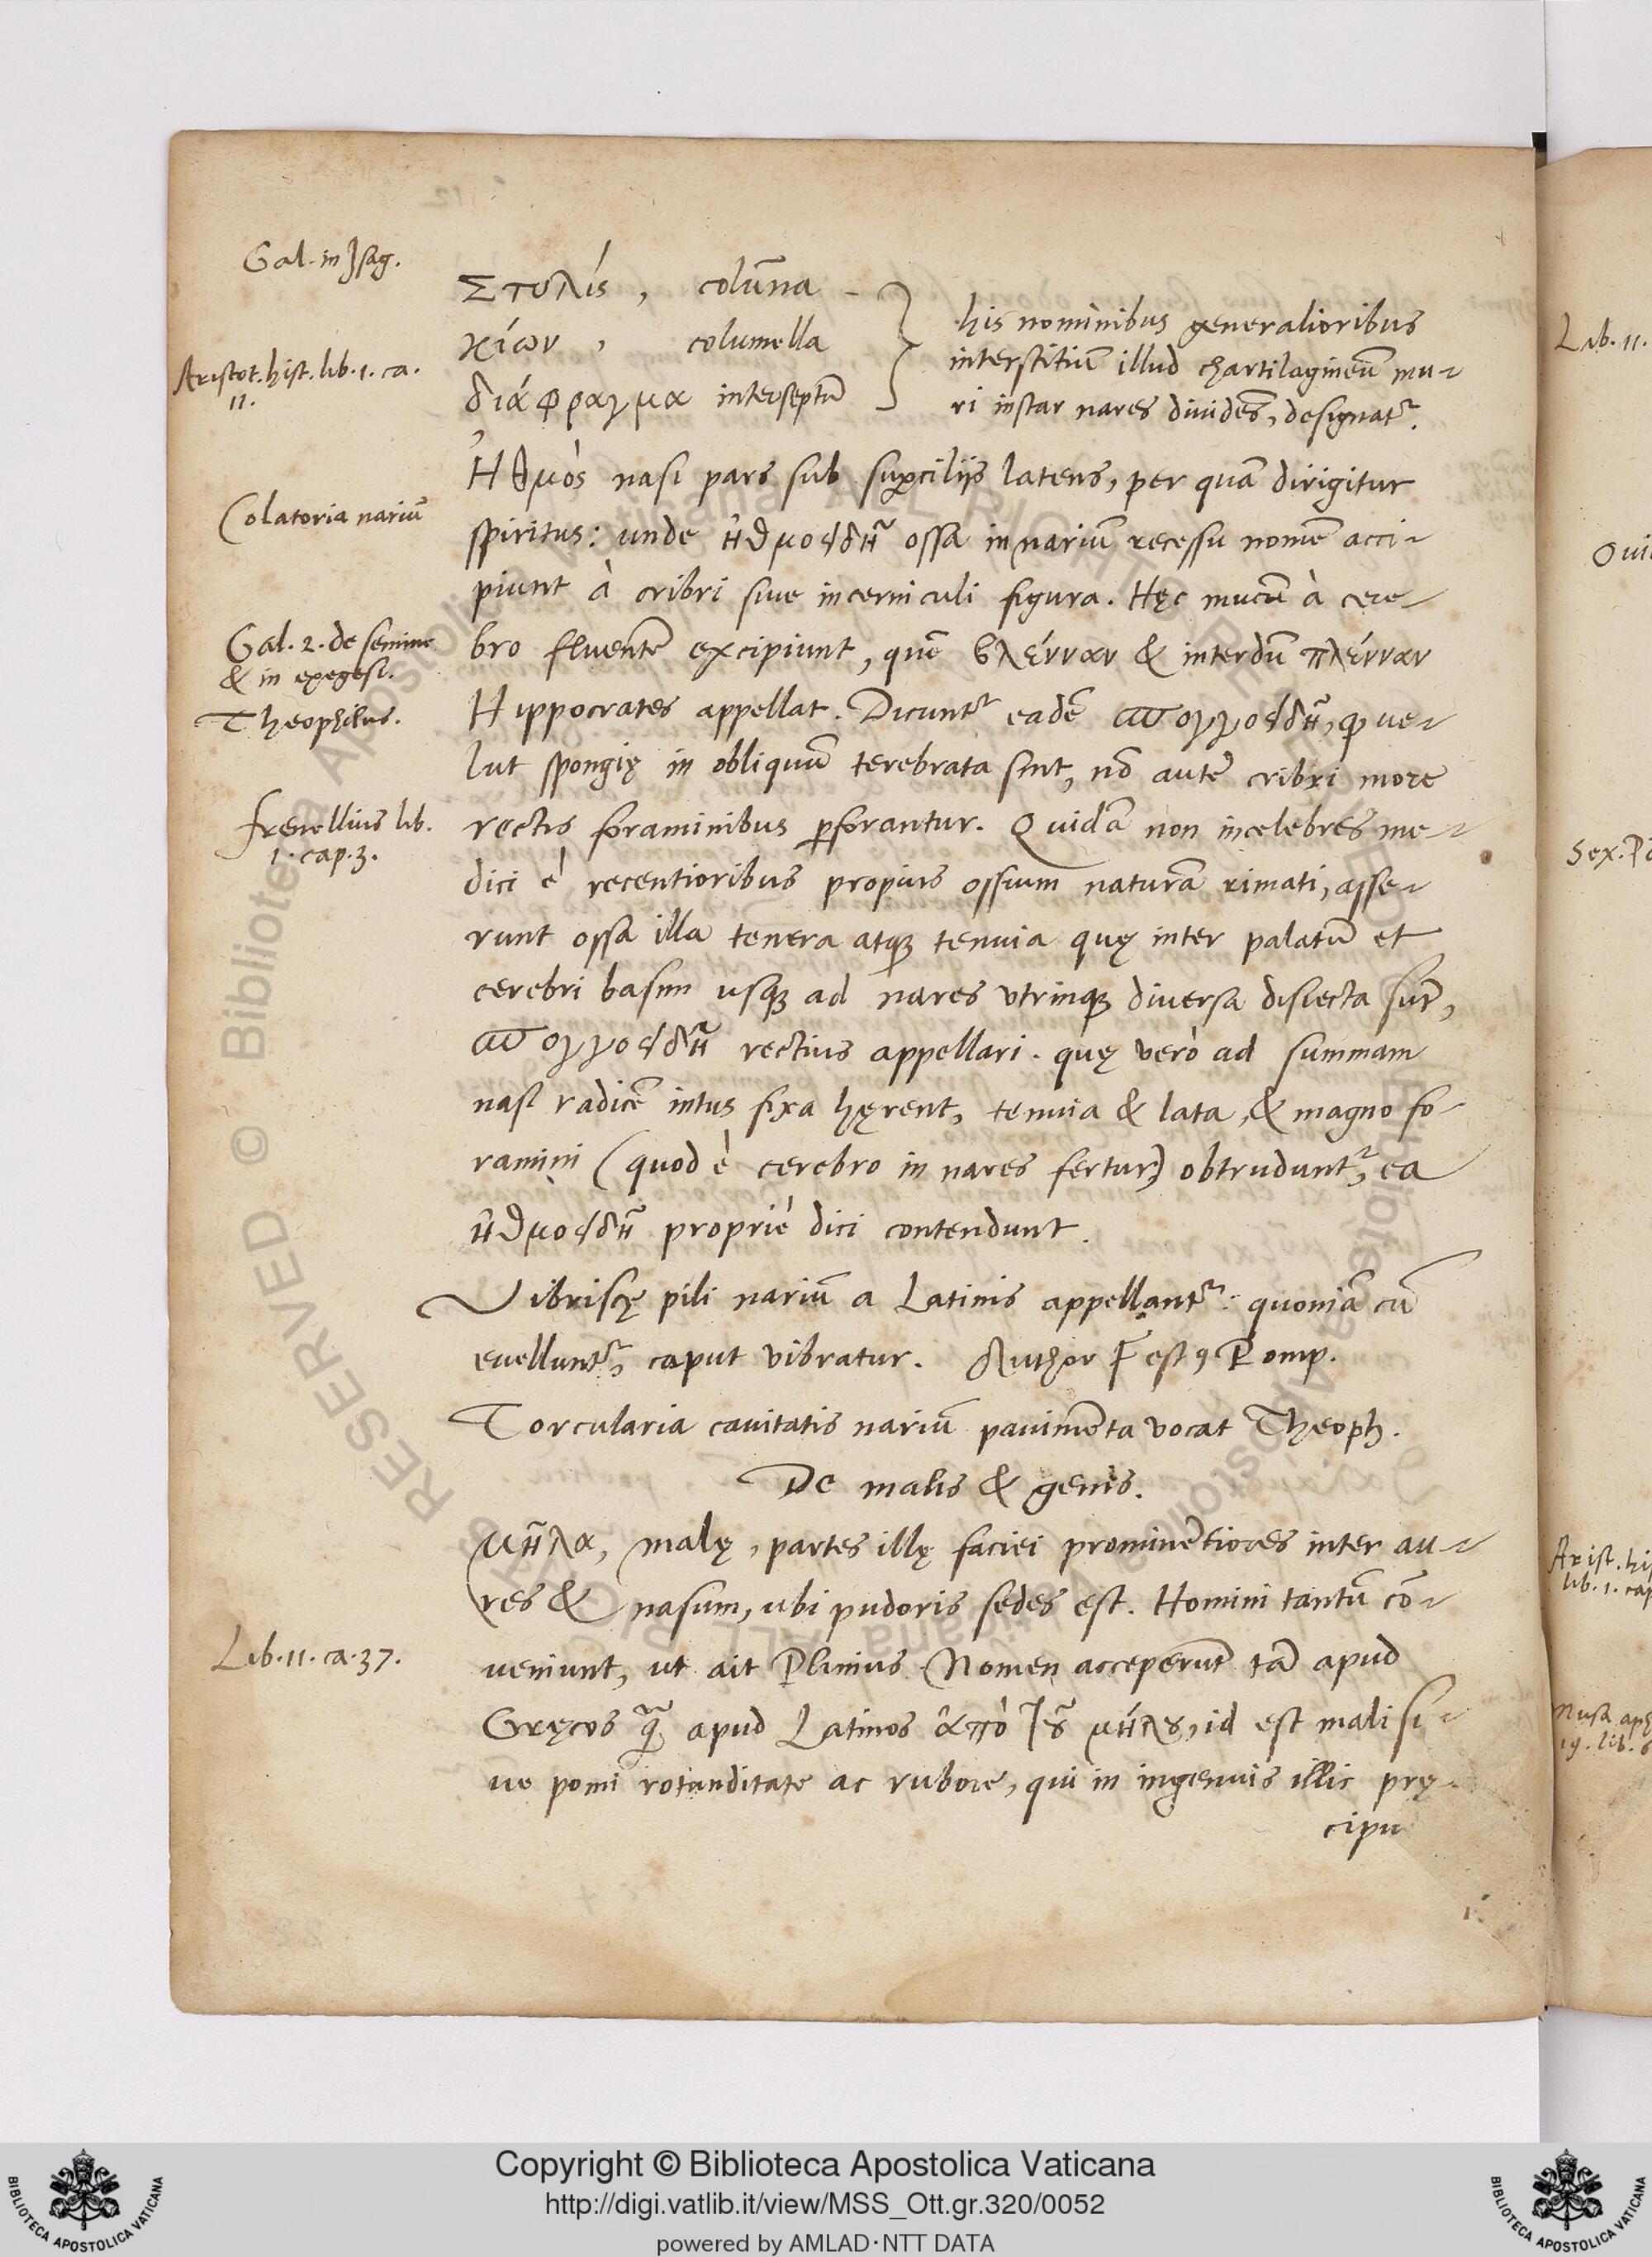 Gal. in Isag.
Στυλίς, colūna
κίων, columella
διάφραγμα interseptū
his nominibus generalioribus
interstitiū illud chartilagineū mu-
ri instar nares diuidēs, designatr.
Aristot. hist. lib. 1. ca.
11.
Ἠθμὸς nasi pars sub supciliis latens, per quā dirigitur
Colatoria nariū
spiritus: unde ἠθμοειδῆ ossa in nariū recessu nomē acci-
piunt à cribri siue incerniculi figura. Hęc mucū à cere-
Gal. 2. de semine
& in exegesi.
bro fluentē excipiunt, quē βλένναν & interdū πλένναν
Theophilus.
Hippocrates appellat. Dicuntr eadē σπογγοειδῆ, q ue-
lut spongię in obliquū terebrata sint, nō autē cribri more
Frenellius lib.
1. cap. 3.
rectis foraminibus pforantur. Quidā non incelebres me-
dici è recentioribus propius ossium naturā rimati, asse-
runt ossa illa tenera atq; tenuia quę inter palatū et
cerebri basim usq; ad nares vtrinq; diuersa disiecta sūt,
σπογγοειδῆ rectius appellari. quę verò ad summam
nasi radicē intus fixa hęrent, tenuia & lata, & magno fo-
ramini (quod è cerebro in nares fertur) obtruduntr, ea
ἠθμοειδῆ propriè dici contendunt.
Vibriscę pili nariū a Latinis appellantr: quoniā cū
euelluntr, caput vibratur. Author Festꝰ Pomp.
Torcularia cauitatis nariū pauimēta vocat Theoph.
De malis & genis.
μῆλα, malę, partes illę faciei prominētiores inter au-
res & nasum, ubi pudoris sedes est. Homini tantū cō-
Lib. 11. ca. 37.
ueniunt, ut ait Plinius. Nomen acceperūt tā apud
Gręcos q̄ apud Latinos ἀπὸ τοῦ μήλου, id est mali si-
ue pomi rotunditate ac rubore, qui in ingenuis illic prę-
cipu
Lib. 11.
Oui
Sex. P
Arist. hi
lib. 1. cap
Musa aph
19. lib. 6
Copyright © Biblioteca Apostolica Vaticana
http://digi.vatlib.it/view/MSS_Ott.gr.320/0052
powered by AMLAD·NTT DATA
BIBLIOTECA APOSTOLICA VATICANA
BIBLIOTECA APOSTOLICA VATICANA